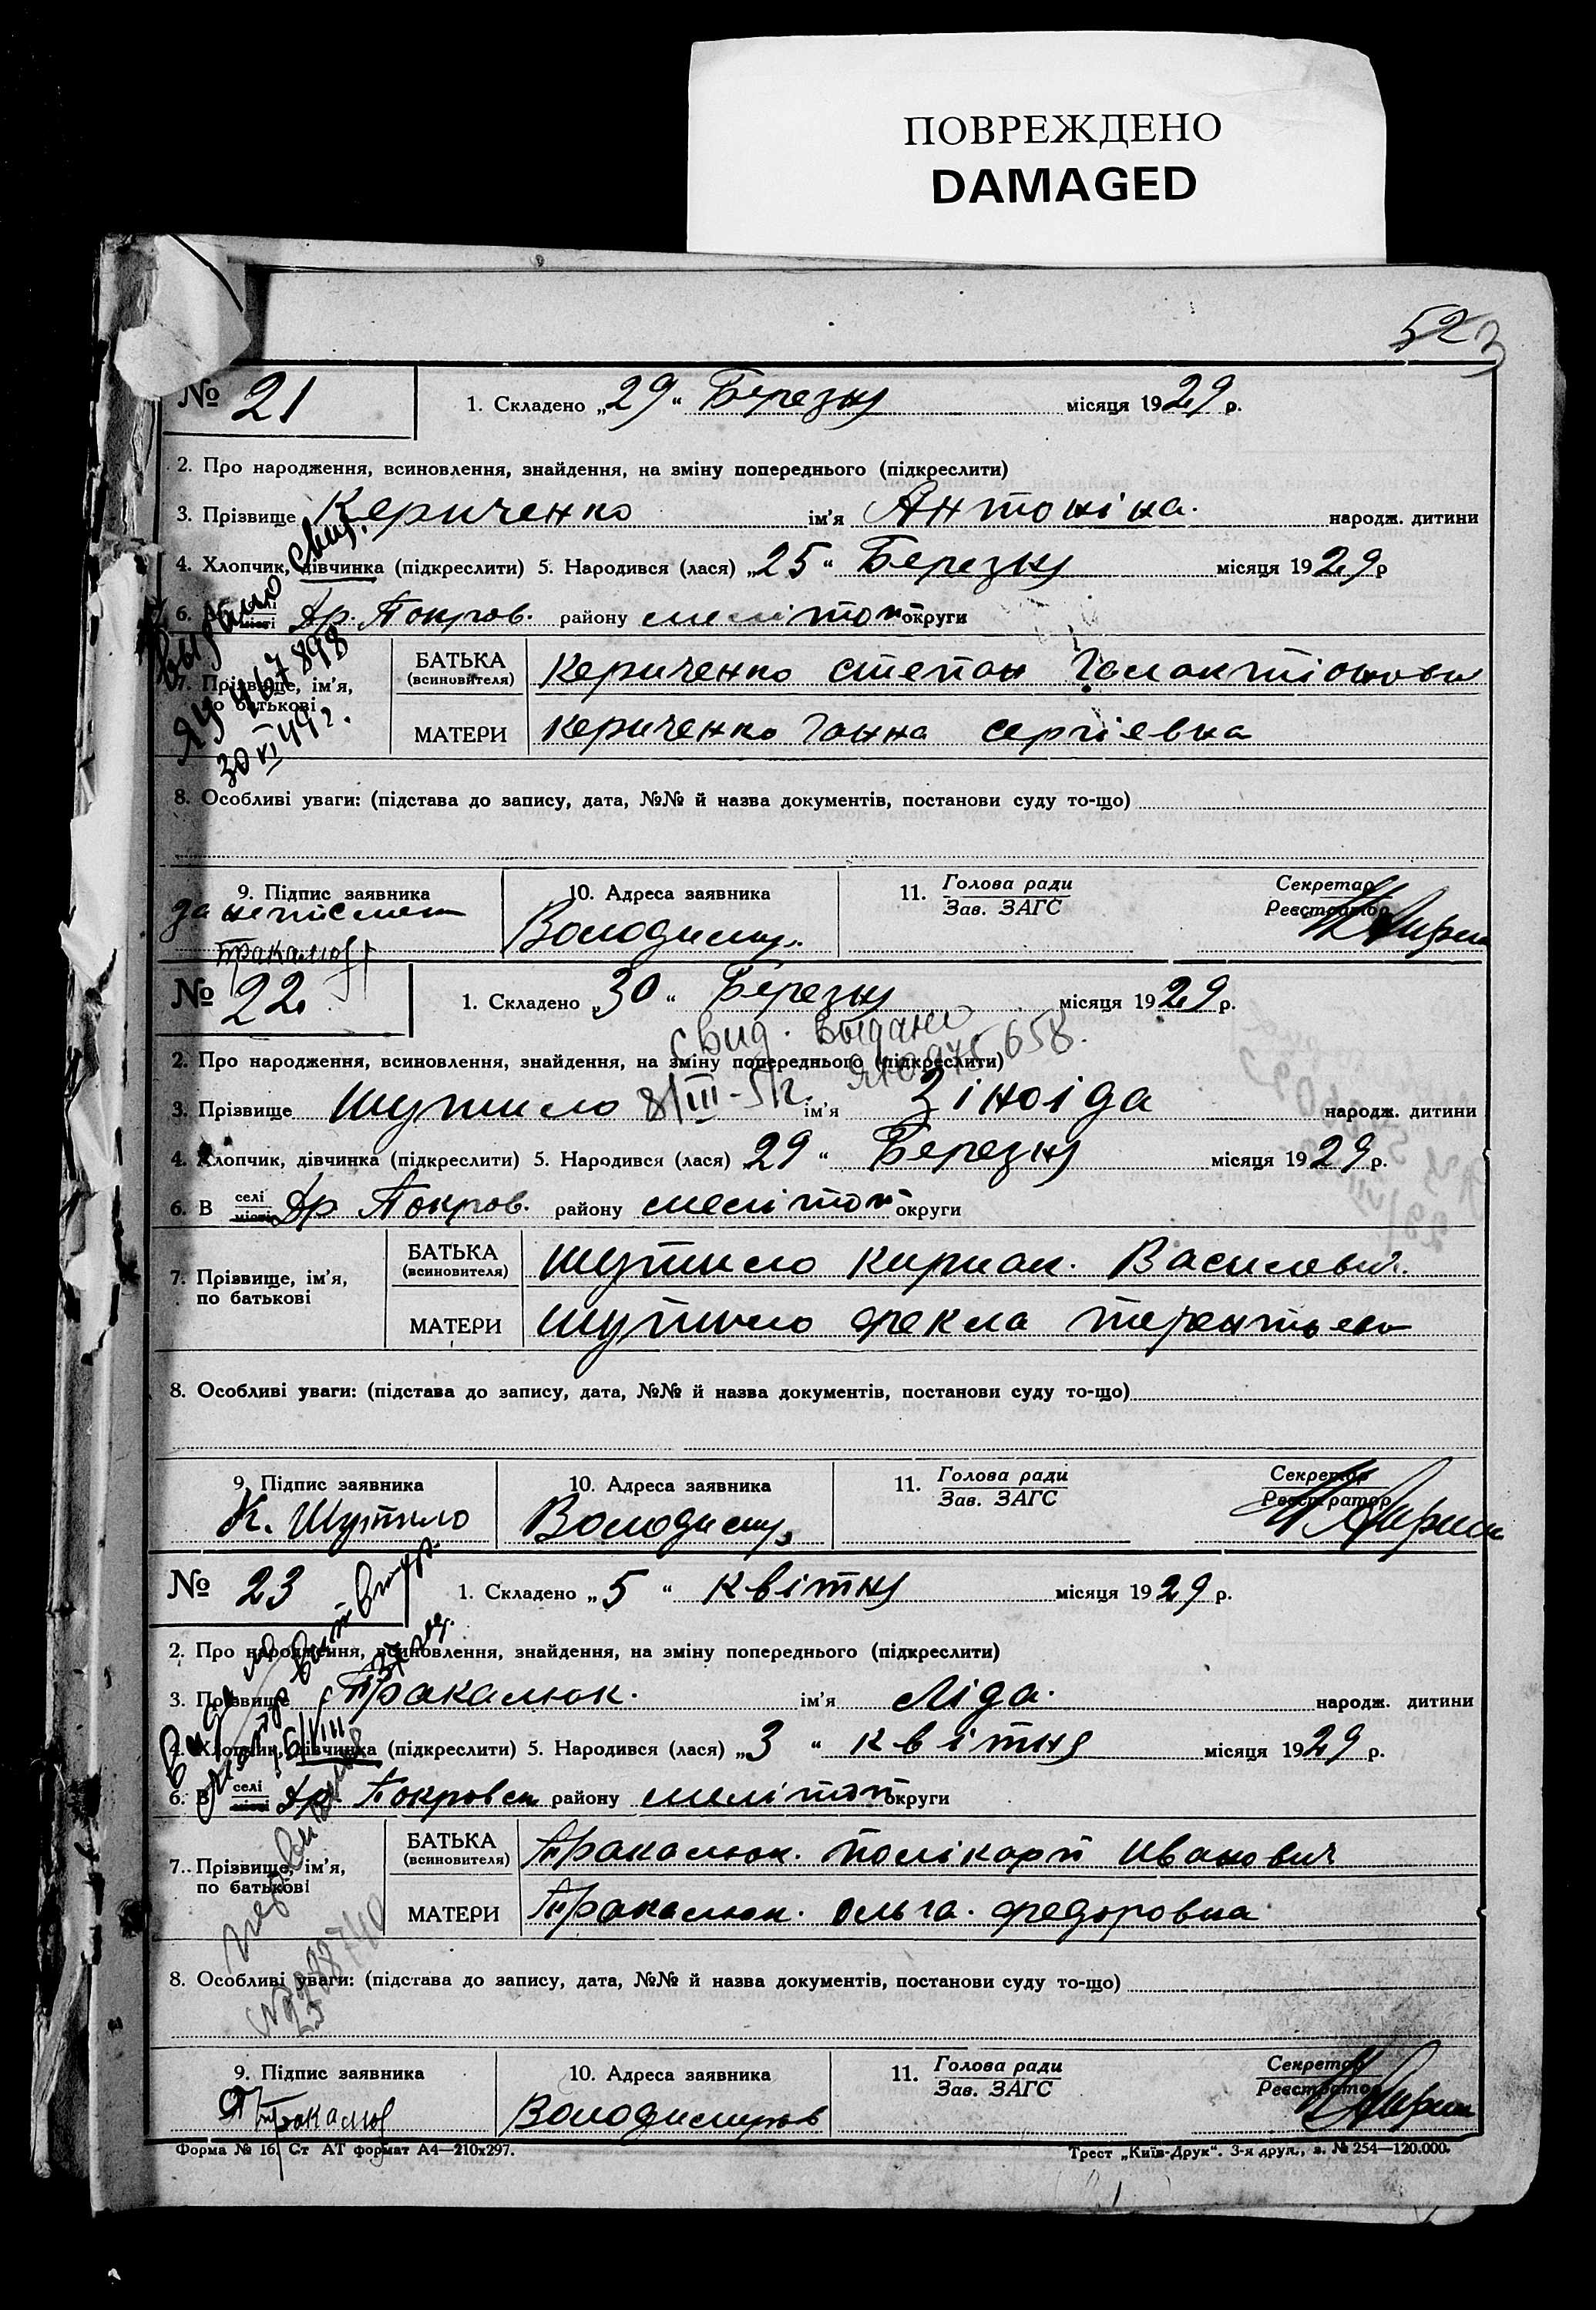 ПОВРЕЖДЕНО
DAMAGED
523
№ 21
1. Складено „29“ Березня місяця 1929 р.
2. Про народження, всиновлення, знайдення, на зміну попереднього (підкреслити)
3. Прізвище Кериченко ім'я Антоніна. народж. дитини
4. Хлопчик, дівчинка (підкреслити) 5. Народився (лася) „25“ Березня місяця 1929 р
6. місті Др. Покров. району меліто округи
Выдано свид.
ЯУ 467898
30 VI 49 г.
7. Прізвище, ім'я, по батькові
БАТЬКА (всиновителя) Кериченко Степан Галактіонови
МАТЕРИ Кериченко Ганна Сергіевна
8. Особливі уваги: (підстава до запису, дата, №№ й назва документів, постанови суду то-що)
9. Підпис заявника
за неписмен
Тракалюк
10. Адреса заявника
Володимир.
11. Голова ради
Зав. ЗАГС
Секретар
Реєстратор
№ 22
1. Складено „30“ Березня місяця 1929 р.
свид. выдано
2. Про народження, всиновлення, знайдення, на зміну попереднього (підкреслити)
8/III-51г.
3. Прізвище Шутило ім'я Зіноіда народж. дитини
4. Хлопчик, дівчинка (підкреслити) 5. Народився (лася) 29“ Березня місяця 1929 р.
6. В селі місті Др Покров. району меліто округи
7. Прізвище, ім'я,
по батькові
БАТЬКА (всиновителя) Шутило Кириак. Василевич.
МАТЕРИ Шутило Фекла Терентьев
8. Особливі уваги: (підстава до запису, дата, №№ й назва документів, постанови суду то-що)
9. Підпис заявника
К. Шутило
10. Адреса заявника
Володимир
11. Голова ради
Зав. ЗАГС
Секретар
Реєстратор
№ 23
1. Складено „5“ квітня місяця 1929 р.
2. Про народження, всиновлення, знайдення, на зміну попереднього (підкреслити)
3. Прізвище Тракалюк. ім'я Ліда. народж. дитини
4. Хлопчик, дівчинка (підкреслити) 5. Народився (лася) „3“ квітня місяця 1929 р.
6. В селі місті Др. Покровск району меліто округи
7. Прізвище, ім'я,
по батькові
БАТЬКА (всиновителя) Тракалюк. Полікарп Иванович
МАТЕРИ Тракалюк. Ольга. Федоровна
8. Особливі уваги: (підстава до запису, дата, №№ й назва документів, постанови суду то-що)
9. Підпис заявника
Тракалюк
10. Адреса заявника
Володимиров
11. Голова ради
Зав. ЗАГС
Секретар
Реєстратор
Форма № 16. Ст АТ формат А4—210х297.
Трест „Київ-Друк“. 3-я друк., з. № 254—120.000.